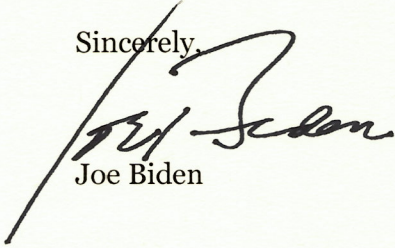 Sincerely,
Joe Biden
Joe Biden